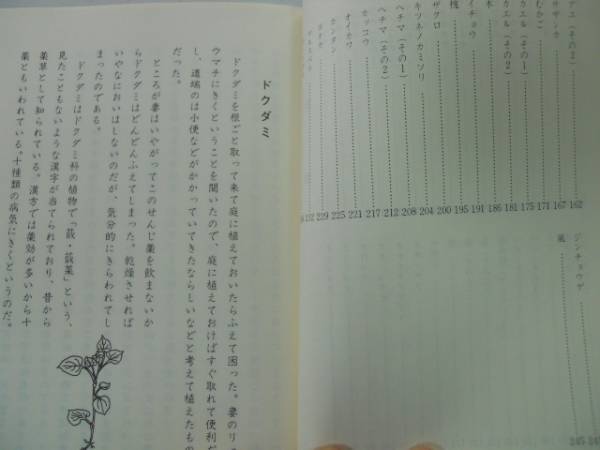 （その２）……162
サザンカ……167
むかご……171
カエル（その１）……175
カエル（その２）……181
木……186
イチョウ……191
槐……195
ザクロ……200
キツネノカミソリ……204
ヘチマ（その１）……208
ヘチマ（その２）……212
セッコウ……217
オイカワ……221
カンタン……225
229
ジンチョウゲ……
ドクダミ
ドクダミを根ごと取って来て庭に植えておいたらふえて困った。妻のリュ
ウマチにきくということを聞いたので、庭に植えておけばすぐ取れて便利だ
し、道端のは小便などがかかっていてきたならしいなどと考えて植えたもの
だった。
ところが妻はいやがってこのせんじ薬を飲まないか
らドクダミはどんどんふえてしまった。乾燥させれば
いやなにおいはしないのだが、気分的にきらわれてし
まったのである。
ドクダミはドクダミ科の植物で「蕺・蕺菜」という、
見たこともないような漢字が当てられており、昔から
薬草として知られている。漢方では薬効が多いから十
薬ともいわれている。十種類の病気にきくというのだ。